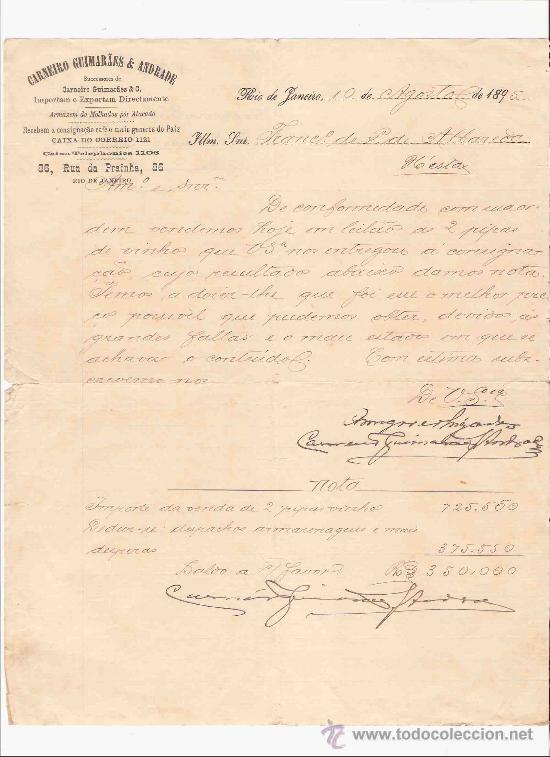 CARNEIRO GUIMARÃES & ANDRADE
Successores de
Carneiro Guimarães & C.
Importam e Exportam Directamente
Armazem de Molhados por Atacado
Recebem a consignação café e mais generos do Paiz
CAIXA DO CORREIO 1121
Caixa Telephonica 1106
86, Rua da Prainha, 86
RIO DE JANEIRO
Rio de Janeiro, 10 de Agosto de 1895
Illm. Snr. Franco. de P. de
N'esta
Am.º e Snr.
De conformidade com sua or
dem vendemos hoje em leilão as 2 pipas
de vinho que V Sª nos entregou á consigna
ção cujo resultado abaixo damos nota.
Temos a dizer-lhe que foi esse o melhor pre
ço possivel que pudemos obter, devido ás
grandes faltas e o mau estado em que se
achava o conteúdo. Com estima subs
crevemo nos
De V. Sª
Carneiro Guimarães & Andrade
Nota
Importe da venda de 2 pipas vinho 725.550
Deduz-se: despachos armazenagens e mais
despezas 375.550
Saldo a s/ favor Rs 350.000
Carneiro Guimarães & Andrade
www.todocoleccion.net